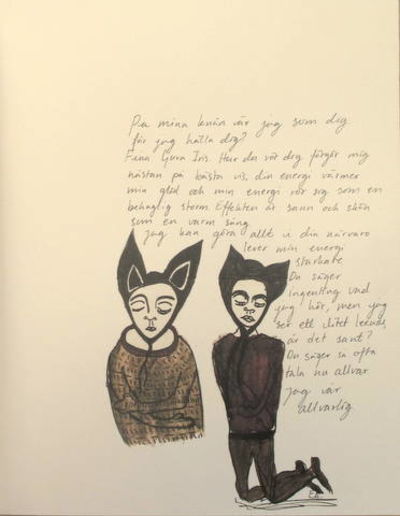 På mina knän är jag som dig
får jag hålla dig?
Fina Gura Iris. Hur du rör dig förgör mig
nästan på bästa vis, din energi värmer
min glöd och min energi rör sig som en
behaglig storm. Effekten är sann och skön
som en varm sång
jag kan göra allt i din närvaro
lever min energi
starkare
Du säger
ingenting vad
jag hör, men jag
ser ett litet leende,
är det sant?
Du säger så ofta
tala nu allvar
jag är
allvarlig